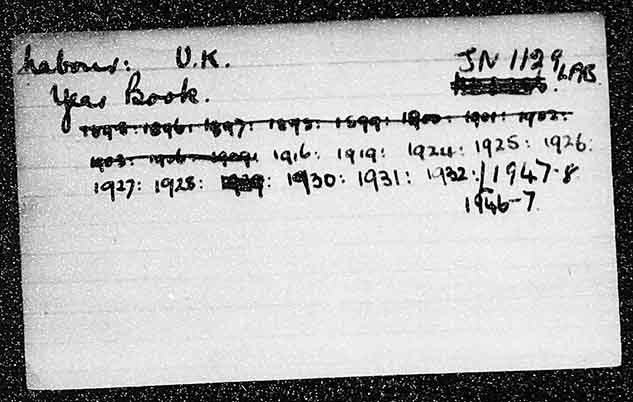 Labour: U.K. JN 1129/LAB.
Year Book.
1895: 1896: 1897: 1898: 1899: 1900: 1901: 1902:
1903: 1908 1909: 1916: 1919: 1924: 1925: 1926:
1927: 1928: 1929: 1930: 1931: 1932: / 1947-8
1946-7